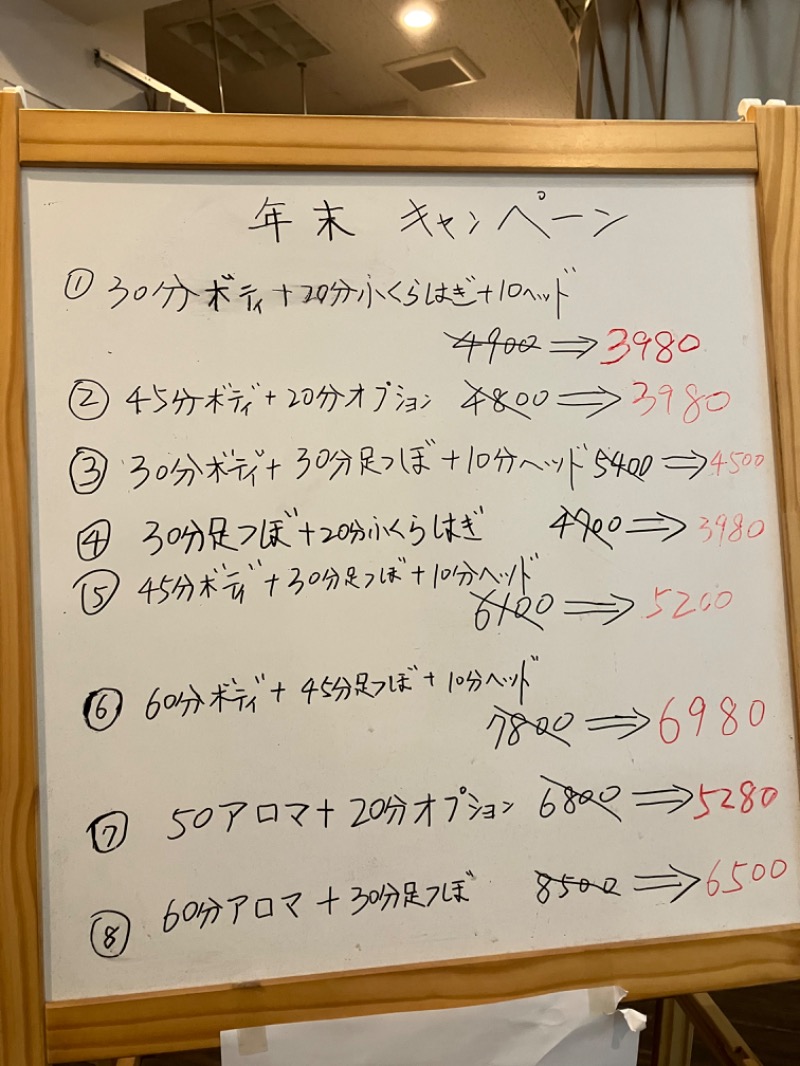 年末 キャンペーン
① 30分ボディ+20分ふくらはぎ+10ヘッド
4900 ⇒ 3980
② 45分ボディ+20分オプション 4800 ⇒ 3980
③ 30分ボディ+30分足つぼ+10分ヘッド 5400 ⇒ 4500
④ 30分足つぼ+20分ふくらはぎ 4700 ⇒ 3980
⑤ 45分ボディ+30分足つぼ+10分ヘッド
6100 ⇒ 5200
⑥ 60分ボディ+45分足つぼ+10分ヘッド
7800 ⇒ 6980
⑦ 50アロマ+20分オプション 6800 ⇒ 5280
⑧ 60分アロマ+30分足つぼ 8500 ⇒ 6500